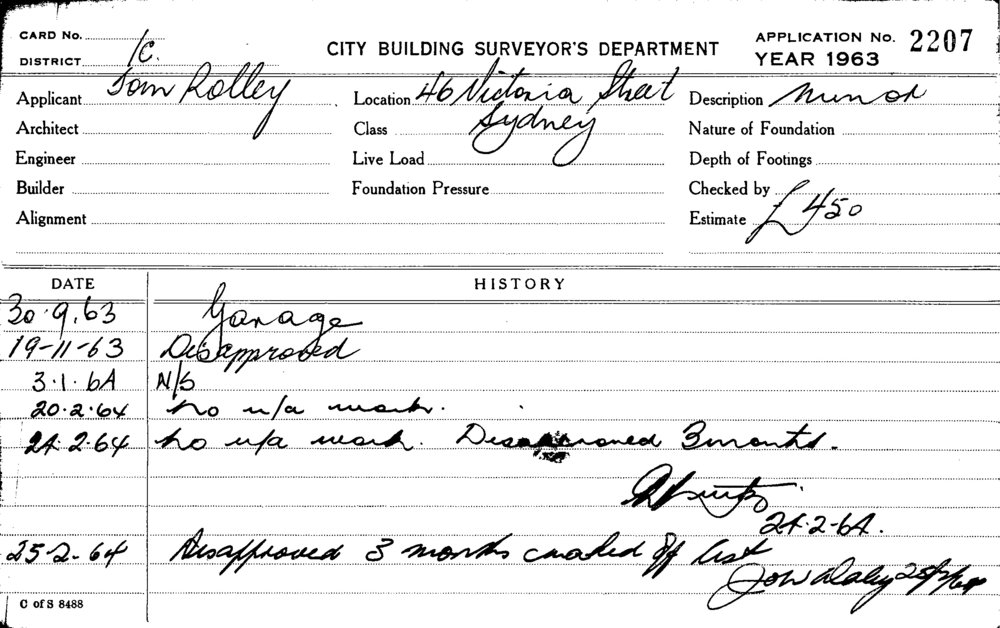 CARD No.
DISTRICT 1C.
CITY BUILDING SURVEYOR'S DEPARTMENT
APPLICATION No. 2207
YEAR 1963
Applicant Tom Rolley Location 46 Victoria Street Description Minor
Architect Class Sydney Nature of Foundation
Engineer Live Load Depth of Footings
Builder Foundation Pressure Checked by
Alignment Estimate £450
DATE HISTORY
30.9.63 Garage
19-11-63 Disapproved
3.1.64 N/S
20.2.64 No u/a work.
24.2.64 No u/a work. Disapproved 3 months.
24.2-64.
25-2-64 Disapproved 3 months marked off list
25/2/64
C of S 8488